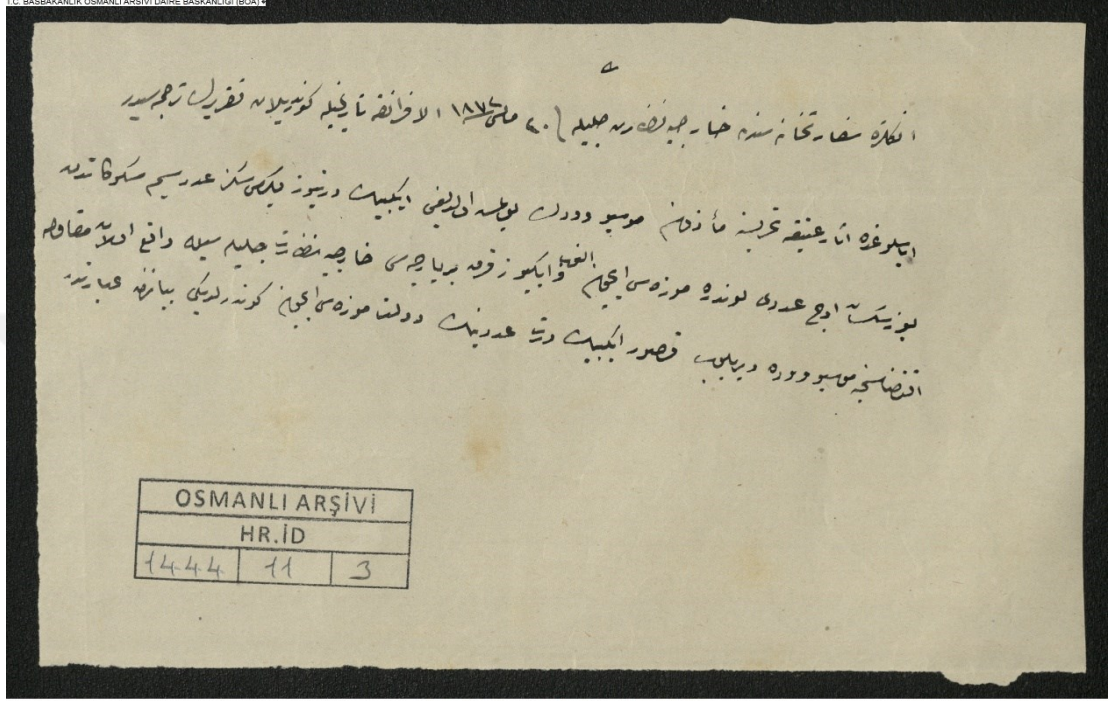 T.C. BAŞBAKANLIK OSMANLI ARŞİVİ DAİRE BAŞKANLIĞI (BOA)
انكلتره سفارتخانه سندن خارجيه نظارت جليله سنه ٢٠ مايس ١٨٧٢ الافرانقه تاريخيله كوندريلان تقريرك ترجمه سيدر
اياسلوغده اثار عتيقه تحريسنه مأذون موسيو وودك بولمش اولديغى ايكيبيك درتيوز يكرمى سكز عدد سيم مسكوكاتدن
يوز سكسان اوچ عددى لوندره موزه سى ايچون الفى وايكيوز قرق بر پارچه سى خارجيه نظارت جليله سيله واقع اولان مقاوله
اقتضاسنجه موسيو ووده ويريلوب قصور ايكيبيك درت عددينك دولت موزه سى ايچون كوندرلديكى بيانندن عبارتدر
OSMANLI ARŞİVİ
HR.İD
1444 11 3